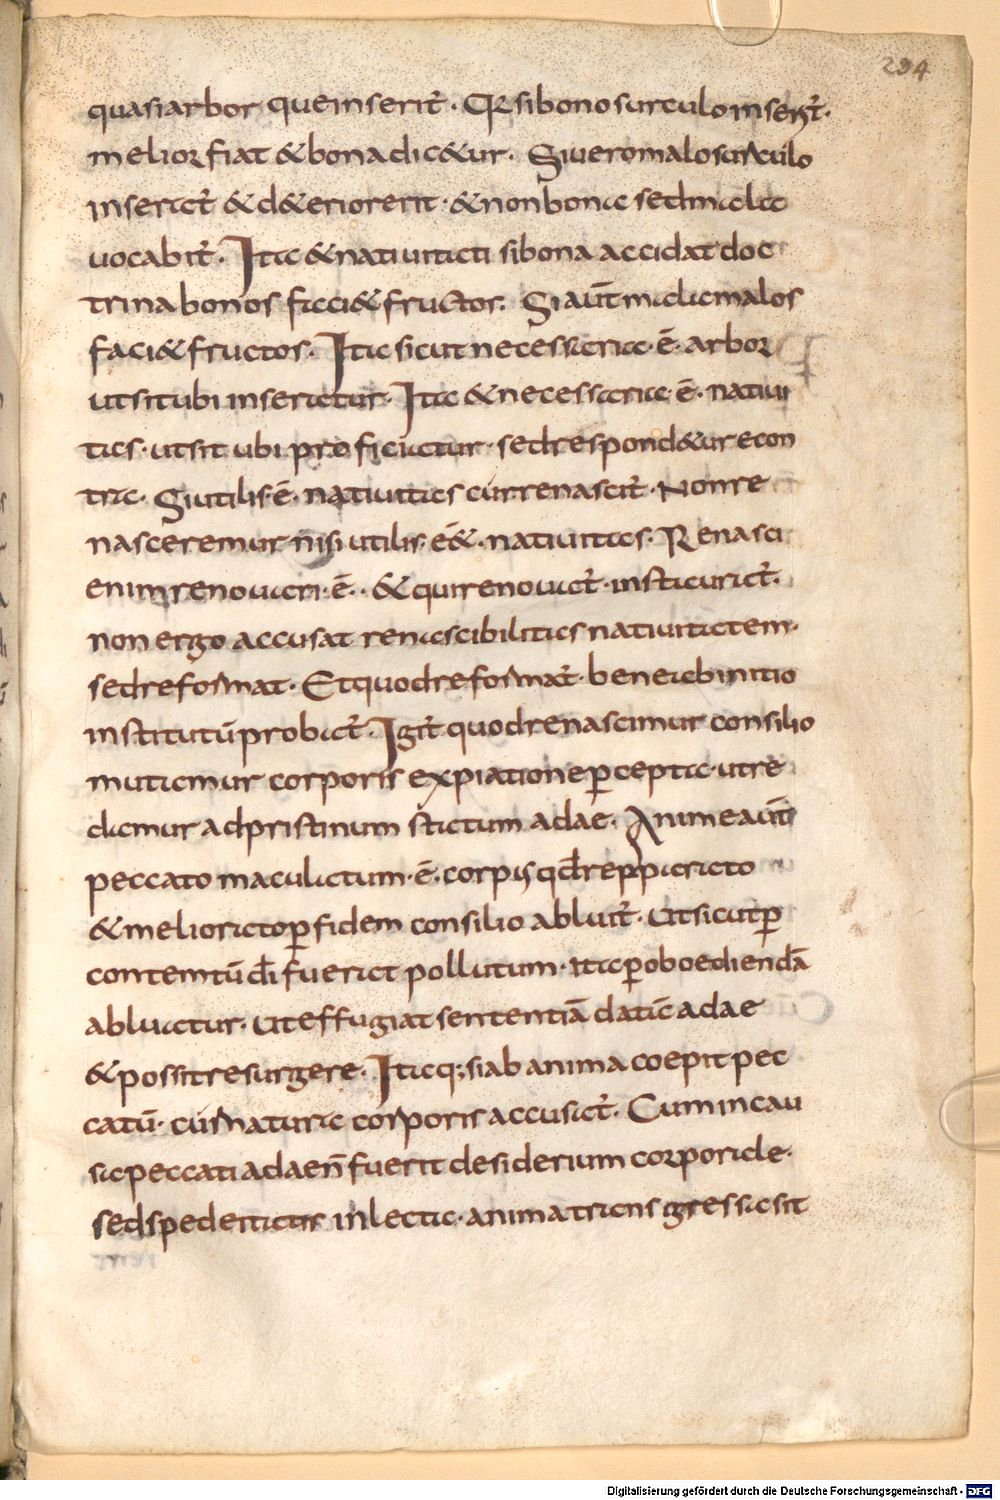 294
quasi arbor que inserit̄. Q̄si bono surculo inser̄t̄.
melior fiat & bona dic&ur. Si uero malo surculo
inserat̄ & d&erior erit. & non bona sed mala
uocabit̄. Ita & natiuitati si bona accidat doc
trina bonos faci& fructos. Si aut̄ mala malos
faci& fructos. Ita sicut necessaria. ē. arbor
ut sit ubi inseratur. Ita & necessaria. ē. natiui
tas. ut sit ubi proficiatur. sed respond&ur e con
tra. Si utilis. ē. natiuitas cur renascit̄. Non re
nasceremur nisi utilis. e&. natiuitas. Renasci
enim renouari. ē.. & qui renouat̄. instauratur̄.
non ergo accusat renascibilitas natiuitatem.
sed reformat. Et quod reformat̄. bene ab initio
institutū probat̄. Igit̄ quod renascimur consilio
mutamur corporis expiatione p̄cepta. ut re
damur ad pristinum statum adae. Anime aut̄
peccato maculatum. ē. corpus qđ reppiarato
& meliorato p̄ fidem consilio abluit̄. Ut sicut p̄
contemtū dī fuerat pollutum. ita p̄ oboediendā
abluatur. ut effugiat sententiā datā adae
& possit resurgere. Itaq; si ab anima coepit pec
catū. cur natura corporis accusat̄. Cum in cau
sa peccati adae n̄ fuerit desiderium corporale.
sed spe deitatis inlecta. anima transgressa sit
Digitalisierung gefördert durch die Deutsche Forschungsgemeinschaft - DFG